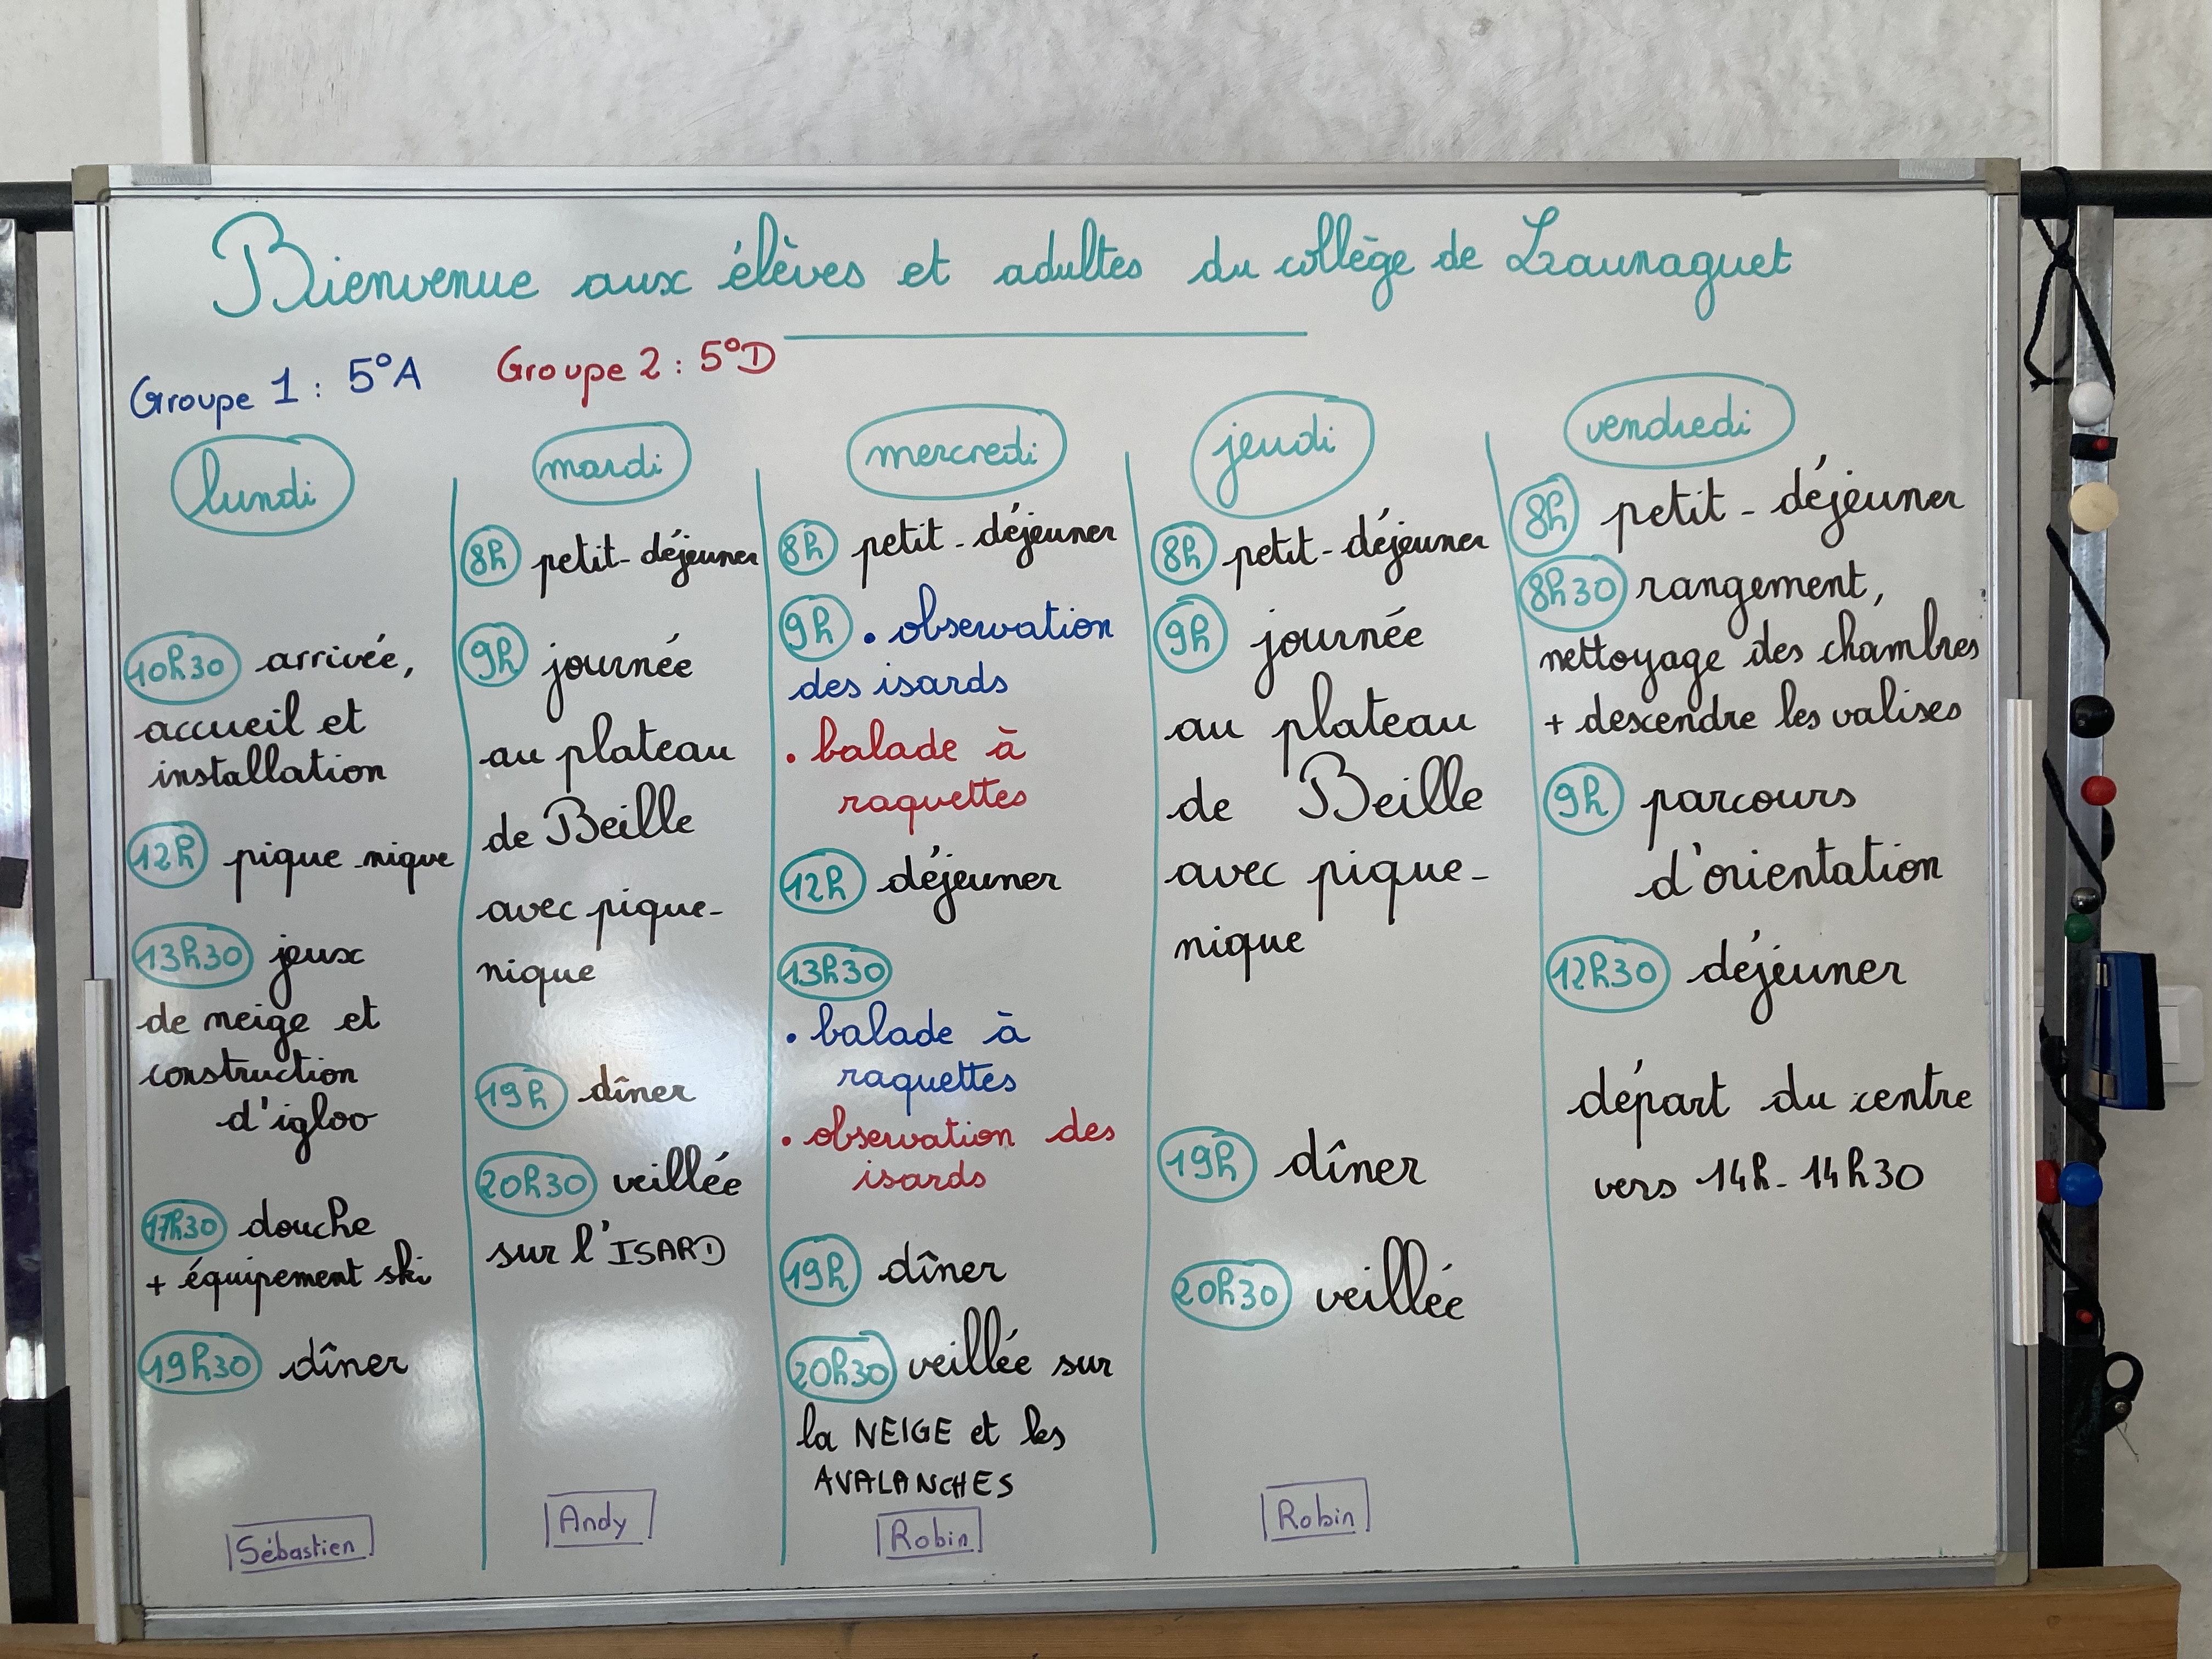 Bienvenue aux élèves et adultes du collège de Launaguet
Groupe 1 : 5°A
Groupe 2 : 5°D
lundi
10h30 arrivée,
accueil et
installation
12h pique-nique
13h30 jeux
de neige et
construction
d'igloo
17h30 douche
+ équipement ski
19h30 dîner
Sébastien
mardi
8h petit-déjeuner
9h journée
au plateau
de Beille
avec pique-
nique
19h dîner
20h30 veillée
sur l'ISARD
Andy
mercredi
8h petit-déjeuner
9h • observation
des isards
• balade à
raquettes
12h déjeuner
13h30
• balade à
raquettes
• observation des
isards
19h dîner
20h30 veillée sur
la NEIGE et les
AVALANCHES
Robin
jeudi
8h petit-déjeuner
9h journée
au plateau
de Beille
avec pique-
nique
19h dîner
20h30 veillée
Robin
vendredi
8h petit-déjeuner
8h30 rangement,
nettoyage des chambres
+ descendre les valises
9h parcours
d'orientation
12h30 déjeuner
départ du centre
vers 14h-14h30